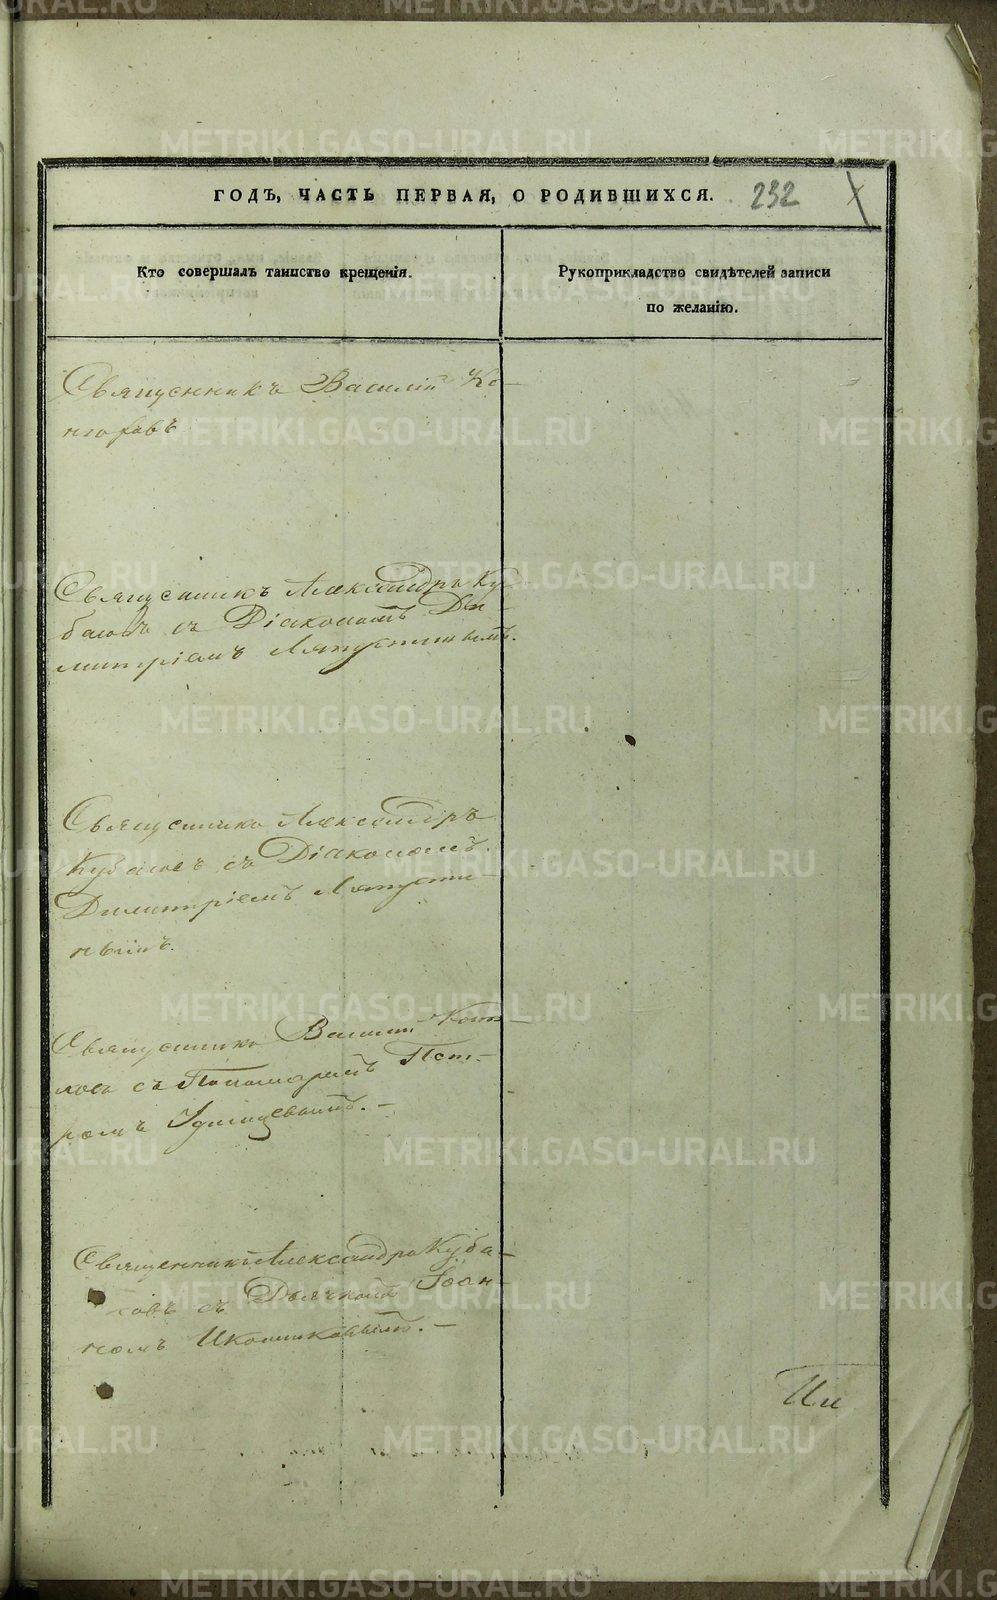 ГОДЪ, ЧАСТЬ ПЕРВАЯ, О РОДИВШИХСЯ. 232
Кто совершалъ таинство крещенія.
Рукоприкладство свидѣтелей записи
по желанію.
Священникъ Василій Ко-
Священникъ Александръ Ку-
басовъ съ Діакономъ Ди-
митріемъ Ляпустинымъ.
Священникъ Александръ
Кубасовъ съ Діакономъ
Димитріемъ Ляпусти-
нымъ.
Священникъ Василій
съ Пономаремъ Пет-
ромъ
Священникъ Александръ Куба-
совъ съ Дьячкомъ Іоан-
номъ Иконниковымъ. –
METRIKI.GASO-URAL.RU